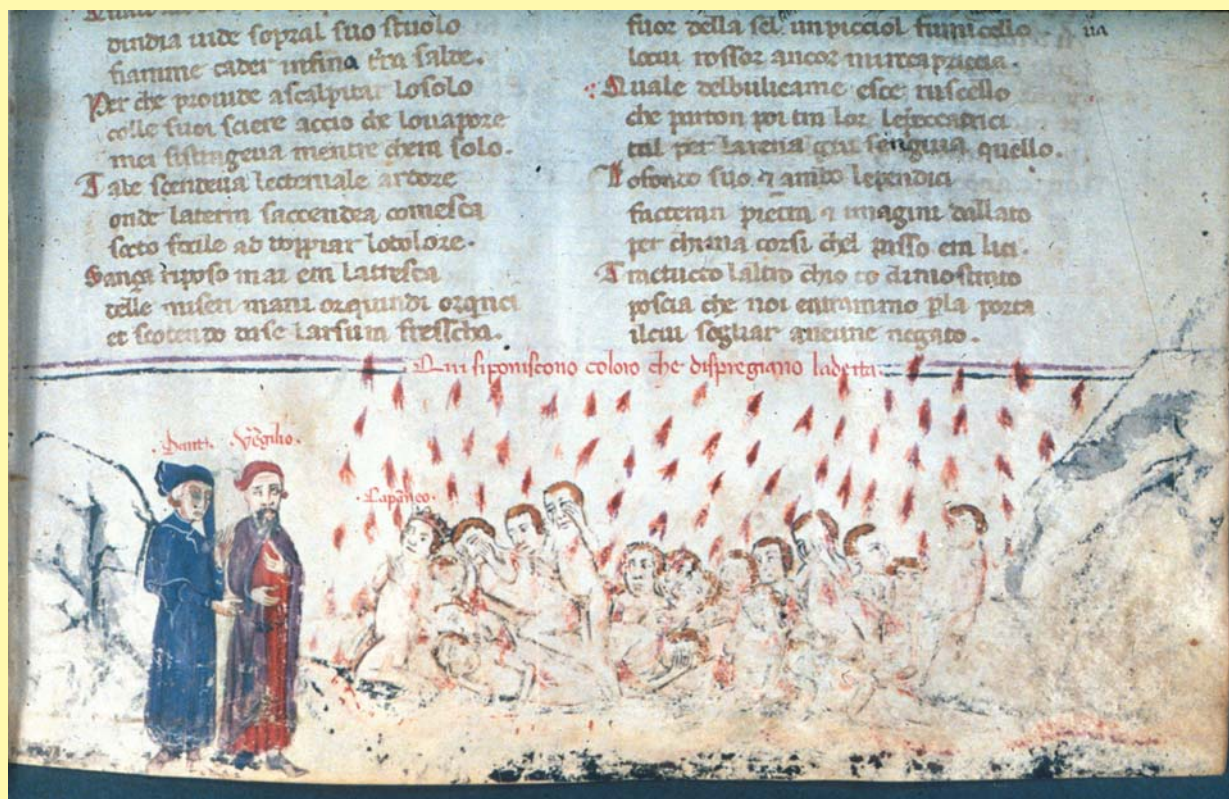 dindia uide sopral suo stuolo
fiamme cader infino terra salde.
Per che prouide ascalpitar losolo
colle sue sciere accio che louapore
mei sistingeua mentre chera solo.
Tale scendeua lecternale ardore
onde larena saccendea comesca
socto focile ad doppiar lodolore.
Sança riposo mai era latresca
delle misere mani orquindi orquici
et scotendo dase larsura frescha.
fuor della sel un picciol fiumicello ua
locui rossor ancor miracapriccia.
Quale delbulicame esce ruscello
che parton poi tra lor lepeccatrici
tal per larena giu senguia quello.
Lofondo suo 7 ambo lependici
facteran pietra 7 imagini dallato
per chima corsi chel passo era lici.
Tractucto laltro chio to dimostrato
poscia che noi entrammo p la porta
ilcui sogliar aneune negato.
Qui siponiscono coloro che dispregiano ladeita.
Dante. Vergilio.
Capaneo.